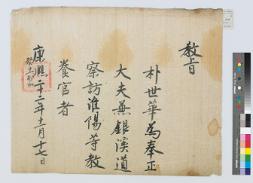 教旨
朴世華為奉正
大夫兼銀溪道
察訪淮陽等教
養官者
康熙二十二年十一月十七日